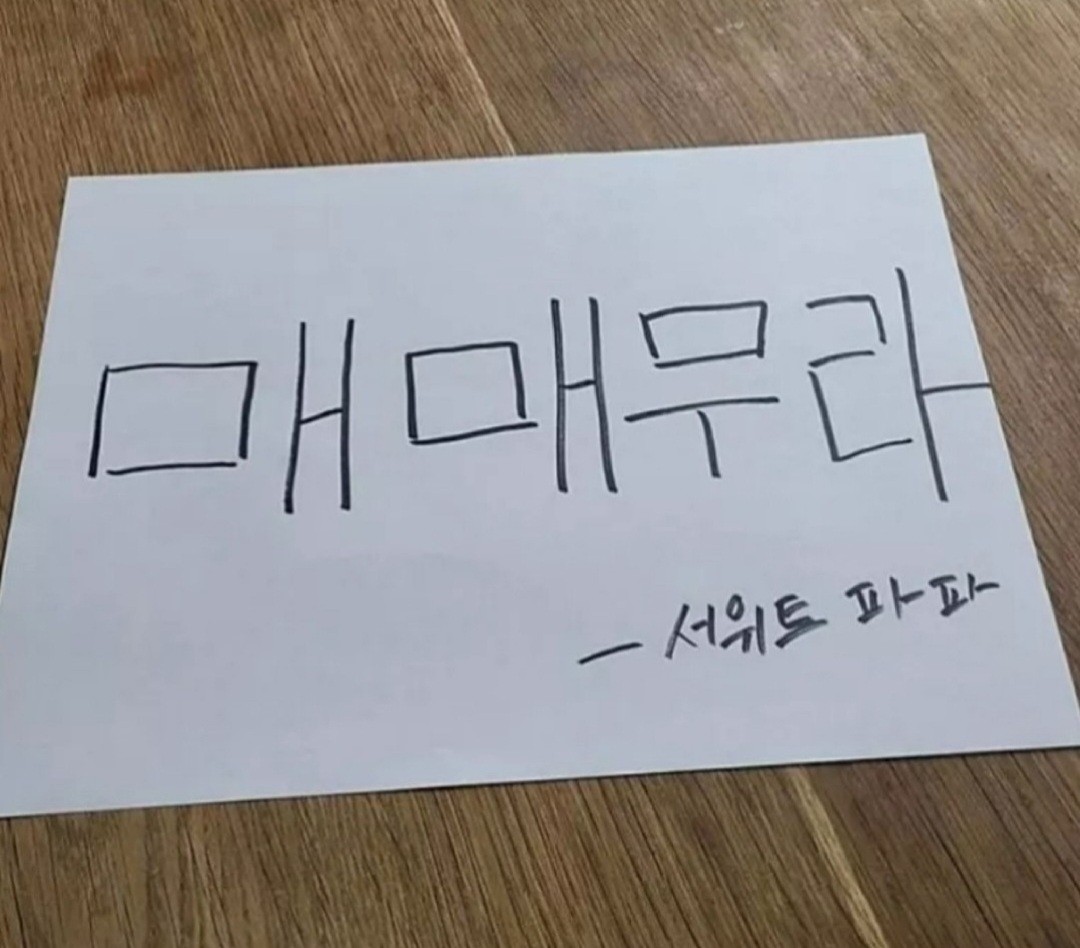 매매무라
- 서위트 파파